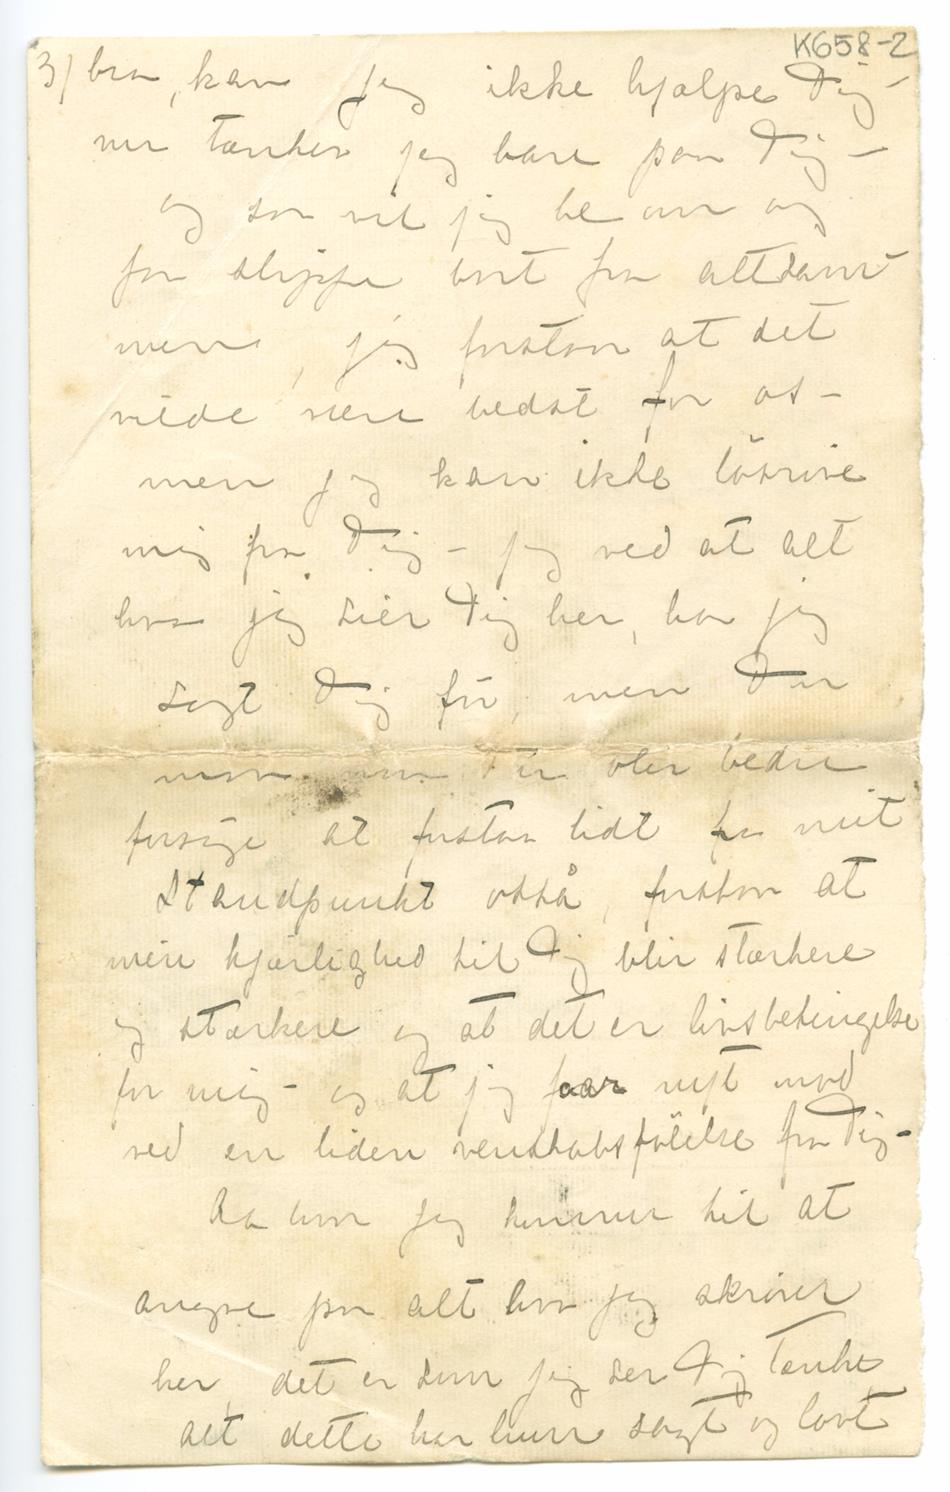 K658-2
3/ bra, kan jeg ikke hjælpe Dig –
nu tænker jeg bare paa Dig –
og saa vil jeg be om og
faa slippe bort fra altsamt
men, jeg forstaar at det
vilde være bedst for os –
men jeg kan ikke løsrive
mig fra Dig – jeg ved at alt
hva jeg sier Dig her, har jeg
sagt Dig før, men Du
maa Du eller bedre
forsøge at forstaa lidt fra mit
Standpunkt också, forstaa at
min kjærlighed til Dig blir stærkere
og stærkere og at det er livsbetingelse
for mig – og at jeg faar nyt mod
ved en liden venskabsfølelse fra Dig –
Aa hvor jeg kommer til at
angre paa alt hva jeg skriver
her, det er som jeg ser Dig tænke
alt dette har hun sagt og lovt